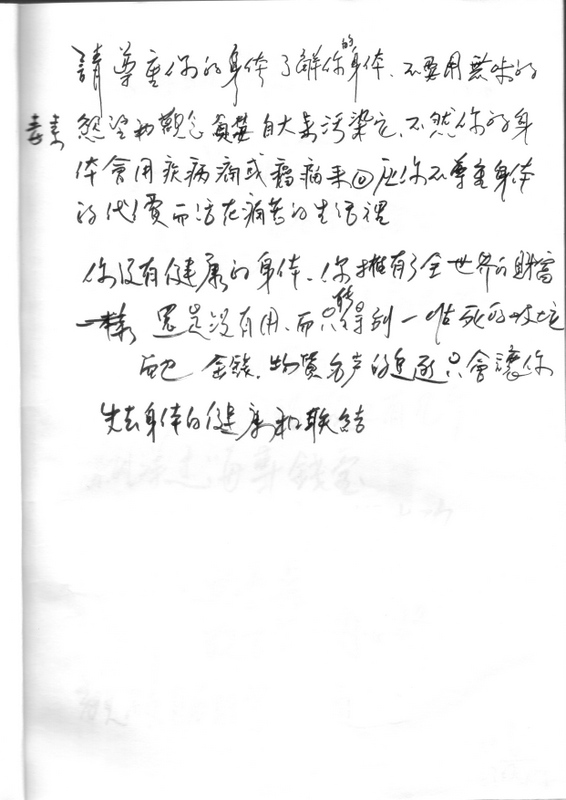 請尊重你的身体了解你的身体、不要用無味的
慾望和觀念貪婪自大來污染它、不然你的身
体會用疾病痛或癌病來回应你不尊重身体
的代價而活在痛苦的生活裡
你沒有健康的身体、你擁有了全世界的財富
一樣 還是沒有用、而只能得到一堆死的
金錢、物質名产的追逐只會讓你
失去身体的健康和联結